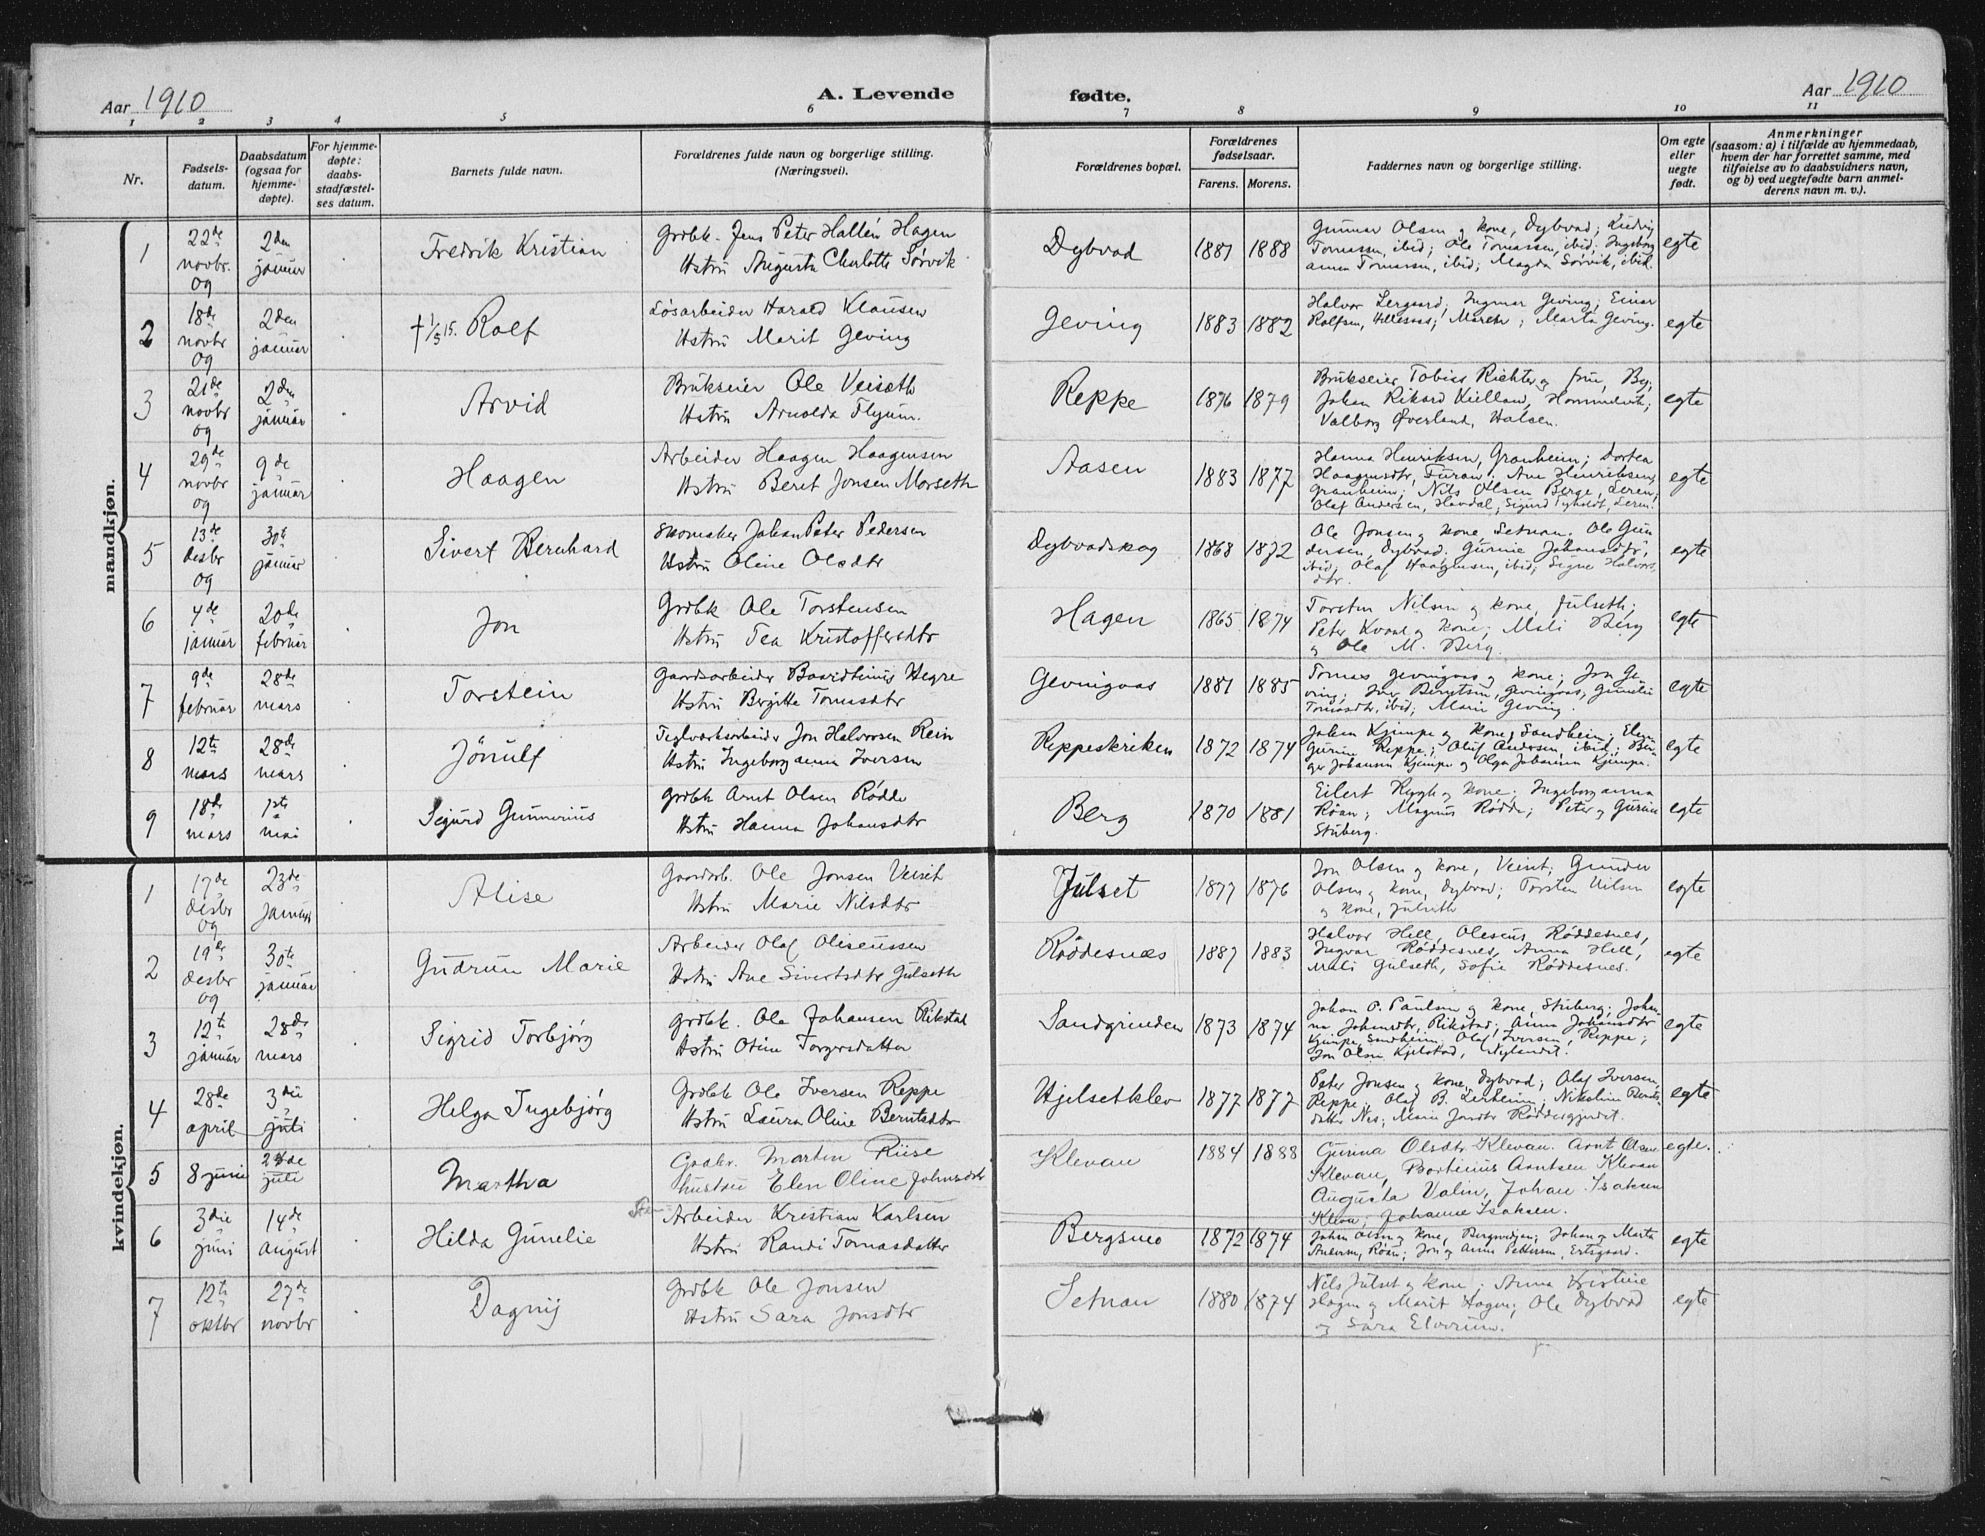 Aar 1910
A. Levende
fødte.
Aar 1910
1 2 3 4 5 6 7 8 9 10 11
Nr.
Fødsels-
datum.
Daabsdatum
(ogsaa for
hjemme-
døpte).
For hjemme-
døpte:
daabs-
stadfæstel-
ses datum.
Barnets fulde navn.
Forældrenes fulde navn og borgerlige stilling.
(Næringsvei).
Forældrenes bopæl.
Forældrenes
fødselsaar.
Farens. Morens.
Faddernes navn og borgerlige stilling.
Om egte
eller
uegte
født.
Anmerkninger
(saasom: a) i tilfælde av hjemmedaab,
hvem der har forrettet samme, med
tilføielse av to daabsvidners navn,
og b) ved uegtefødte barn anmel-
derens navn m. v.).
mandkjøn.
1
22de
novbr.
09
2den
januar
Fredrik Kristian
Grdbk. Jens Peter Hallén Hagen
Hstru Augusta Charlotte Sørvik
Dybvad
1881 1888
Gunnar Olsen og kone, Dybvad; Ludvig
Tomassen, ibid; Ole Tomassen, ibid; Ingeborg
anna Tomassen, ibid; Magda Sørvik, ibid.
egte
2
18de
novbr
09
2den
januar
† 1/5 15. Rolf
Løsarbeider Harald Klausen
Hstru Marit Geving
Geving
1883 1882
Halvor Lergaard; Ingmar Geving; Einar
Rolfsen, ; Marta Geving.
egte
3
21de
novbr
09
2den
januar
Arvid
Brukseier Ole Veiseth
Hstru Arnolda Flynum.
Reppe
1876 1879
Brukseier Tobias Richter og frue, By;
Johan Rikard Kielland, Hommelvik;
Valborg Øverland, Halsen.
egte
4
29de
novbr
09
9de
januar
Haagen
Arbeider Haagen Haagensen
Hstru Beret Jonsen Morseth
Aasen
1883 1877
Hanna Henriksen, Granheim; Dortea
Haagensdtr, Furan; Ane Henriksen,
Granheim; Nils Olsen Berge, Leren;
Olaf Andersen, Havdal; Sigurd Tyholdt, Leren.
egte
5
13de
desbr
09
30te
januar
Sivert Bernhard
Skomaker Johan Peter Pedersen
Hstru Oline Olsdtr
Dybvadskog
1868 1872
Ole Jonsen og kone Setnan; Ole Gun
dersen, Dybvad; Gurine Johansdtr,
ibid; Olaf Haagensen, ibid; Signe Halvors
dtr.
egte
6
4de
januar
20de
februar
Jon
Grdbk Ole Torstensen
Hstru Tea Kristoffersdtr
Hagen
1865 1874
Torsten Nilsen og kone, Julseth;
Peter Kvaal og kone; Mali Berg
og Ole M. Berg.
egte
7
9de
februar
28de
mars
Torstein
Gaardsarbeider Baardtinius Hegre
Hstru Bergitte Tomasdtr
Gevingaas
1881 1885
Tomas Gevingaas og kone; Jon Ge
ving; Iver Berntsen, Gevingaas; Gunelie
Tomasdtr, ibid; Marie Geving.
egte
8
12te
mars
28de
mars
Jørulf
Teglverksarbeider Jon Halvorsen Rein
Hstru Ingeborganna Iversen
Reppeskriken
1872 1874
Johan Kjimpe og kone, Sandheim; Elen
Gurine Reppe; Oluf Andersen, ibid; Bir
ger Johansen Kjimpe og Olga Johansen Kjimpe.
egte
9
18de
mars
1ste
mai
Sigurd Gunnerius
Grdbk Arnt Olsen Rødde
Hstru Hanna Johansdtr
Berg
1870 1881
Eilert Rygh og kone; Ingeborganna
Røan; Magnus Rødde; Peter og Gurine
Stuberg.
egte
kvindekjøn.
1
17de
desbr
09
23de
januar
Alise
Gaardarb. Ole Jonsen Veiset
Hstru Marie Nilsdtr
Julset
1877 1876
Jon Olsen og kone, Veiset; Gunder
Olsen og kone, Dybvad; Torsten Nilsen
og kone, Julseth
egte
2
19de
desbr
09
30te
januar
Gudrun Marie
Arbeider Olaf Oliseussen
Hstru Ane Sivertsdtr Gulseth
Røddesnæs
1887 1883
Halvor Hell, Oliseus Røddesnes,
Ingvar Røddesnes, Anna Hell,
Mali Gulseth, Sofie Røddesnes.
egte
3
12te
januar
28de
mars
Sigrid Torbjørg
Grdbk. Ole Johansen Rikstad
Hstru Otine Torgersdatter
Sandgrinden
1873 1874
Johan P. Paulsen og kone, Stuberg; Johan
na Johansdtr, Rikstad; Anna Johansdtr
Kjimpe, Sandheim; Olaf Iversen, Reppe;
Jon Olsen Kjelstad, Nylandet.
egte
4
28de
april
3die
juli
Helga Ingebjørg
Grdbk Ole Iversen Reppe
Hstru Laura Oline Berntsdtr
Hjelsetklev
1877 1877
Peter Jonsen og kone, Dybvad; Olaf Iversen,
Reppe; Olaf B. Lerheim; Nikoline Bernts-
datter Nes; Marie Jonsdtr Røddegjerdet.
egte
5
8 juni
24de
juli
Martha
Gaabr. Martin Riise
hustru Elen Oline Johnsdtr
Klevan
1884 1888
Gurina Olsdtr Klevan. Arnt Olsen
Klevan, Bortinius Arntsen Klevan
Augusta Valin, Johan Isaksen
Klevan, Johanne Isaksen.
egte.
6
3die
juni
14de
august
Hilda Gunelie
Arbeider Kristian Karlsen
Hstru Randi Tomasdatter
Bergsmo
1872 1874
Johan Olsen og kone, ; Johan og Marta
Andersen, Røan; Jon og Anna Pettersen, Ertsgaard.
egte
7
12te
oktbr
27de
novbr
Dagny
Grdbk Ole Jonsen
Hstru Sara Jonsdtr
Setnan
1880 1874
Nils Julset og kone; Anna Kristine
Hagen og Marit Hagen; Ole Dybvad
og Sara Elverum.
egte